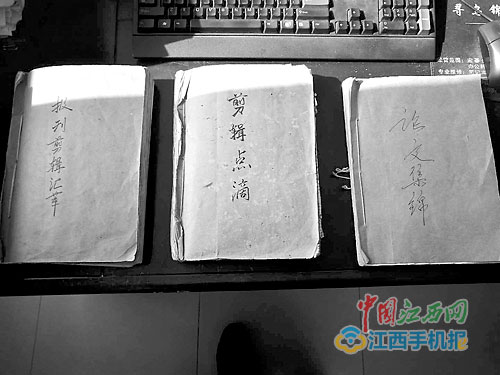 报刊剪辑汇萃
剪辑点滴
论文集锦
中国江西网
江西手机报